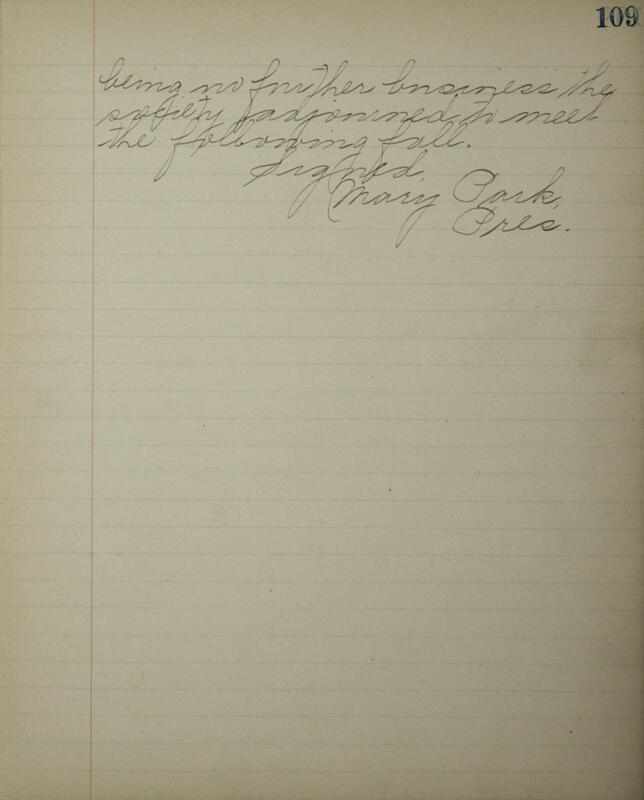 109
being no further business the
society adjourned to meet
the following fall.
Signed,
Mary Park,
Pres.